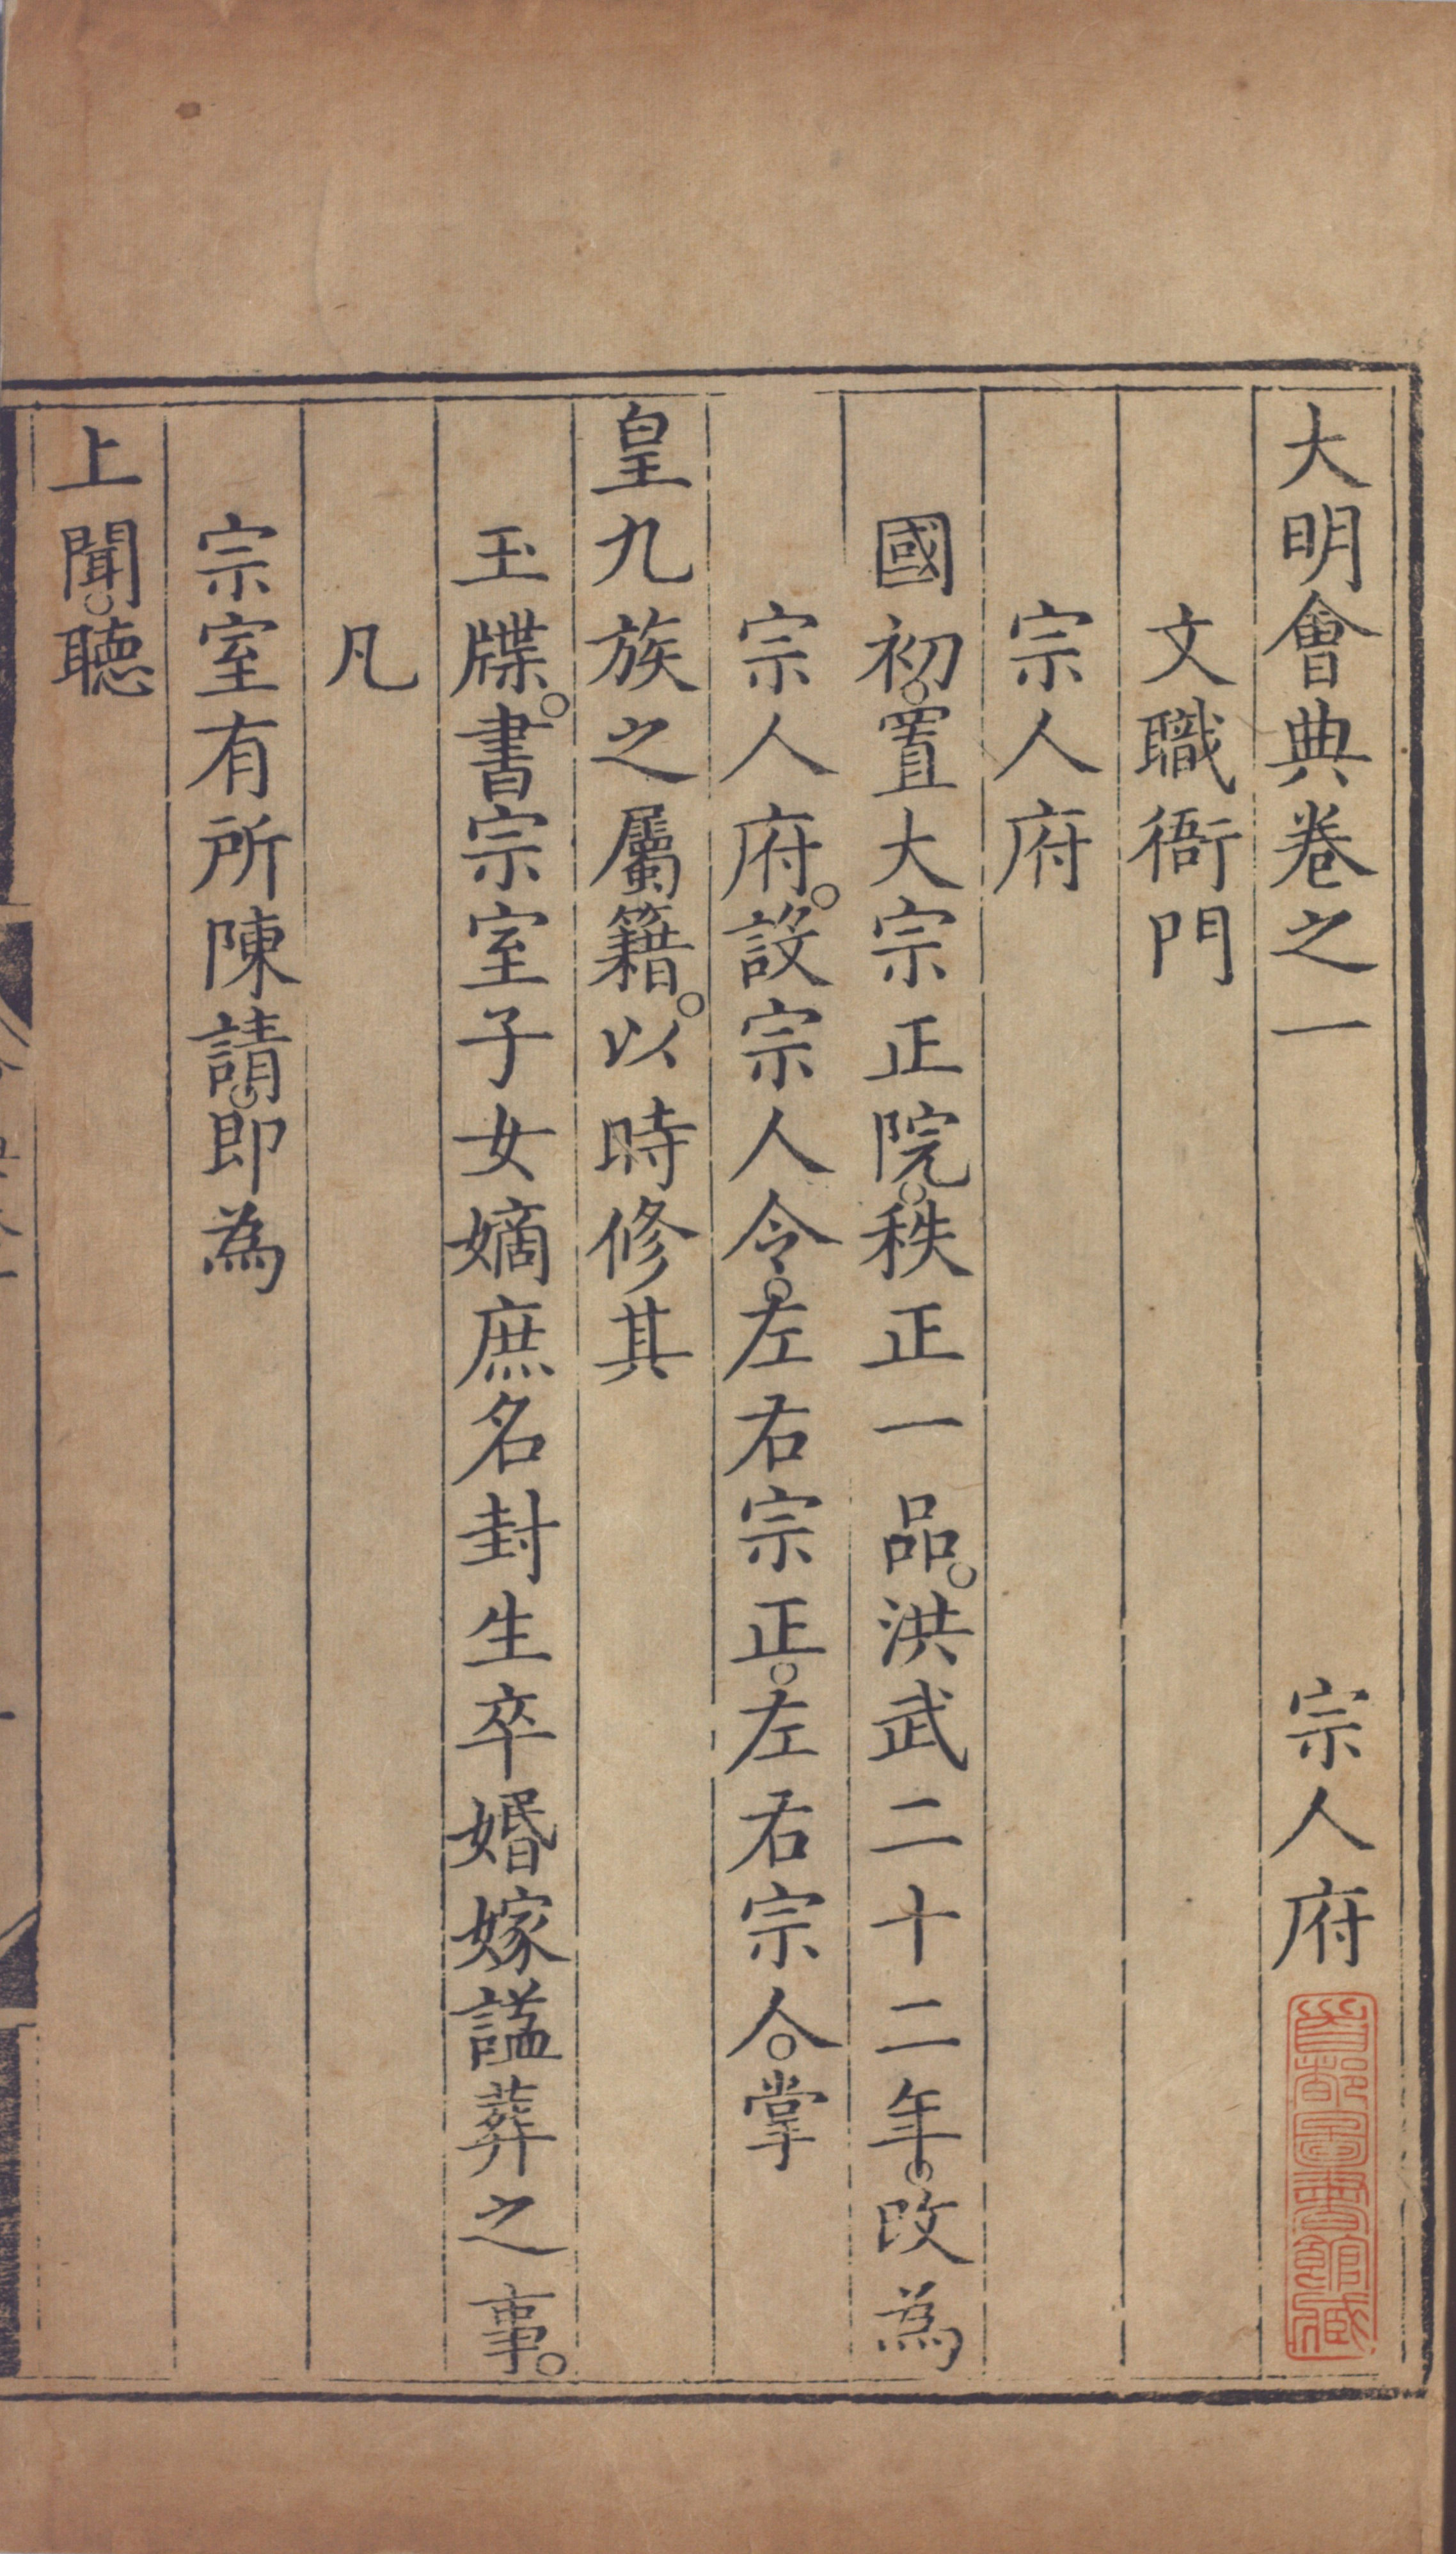 大明會典卷之一 宗人府
文職衙門
宗人府
國初。置大宗正院。秩正一品。洪武二十二年。改為
宗人府。設宗人令。左右宗正。左右宗人。掌
皇九族之屬籍。以時修其
玉牒。書宗室子女嫡庶名封生卒婚嫁謚葬之事。
凡
宗室有所陳請。即為
上聞。聴
首都圖書館藏